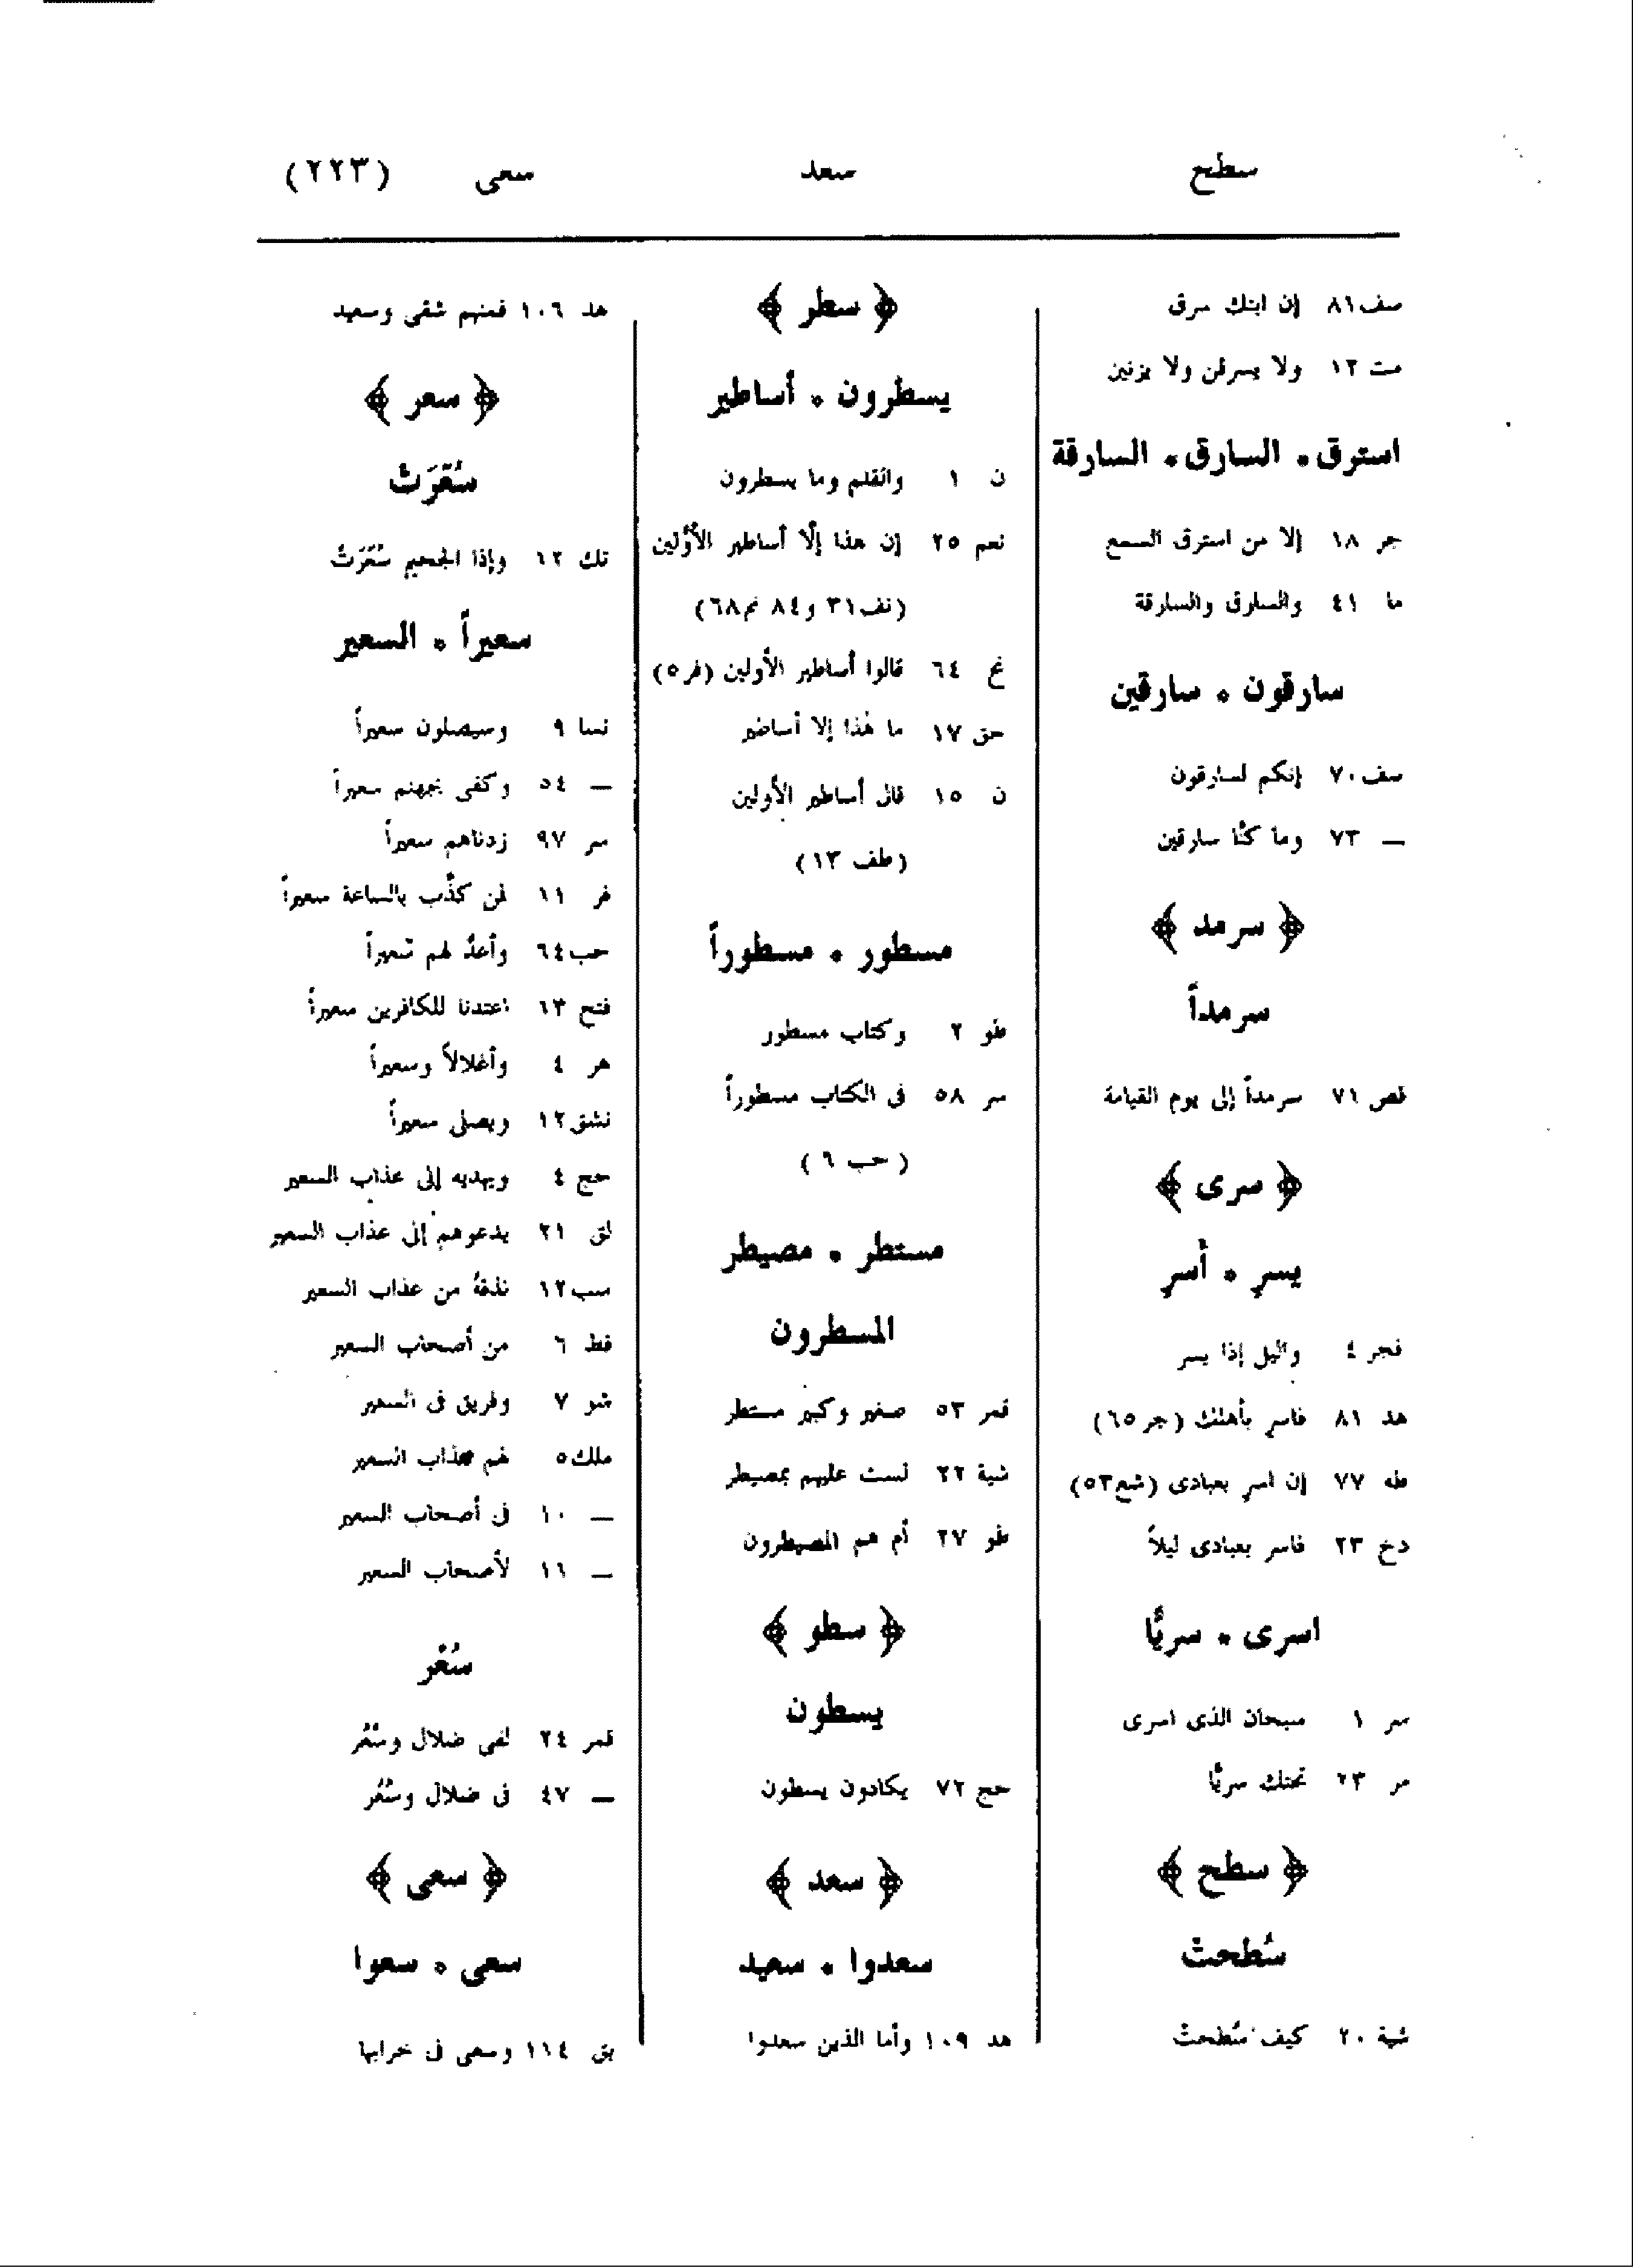 سطح سعد سعى (٢٢٣)
صف ٨١ إن ابنك سرق
مت ١٢ ولا يسرقن ولا يزنين
استرق * السارق * السارقة
جر ١٨ إلا من استرق السمع
ما ٤١ والسارق والسارقة
سارقون * سارقين
سف ٧٠ إنكم لسارقون
— ٧٣ وما كنّا سارقين
﴿ سرمد ﴾
سرمداً
قص ٧١ سرمداً إلى يوم القيامة
﴿ سرى ﴾
يسرِ * أسرِ
فجر ٤ واليل إذا يسر
هد ٨١ فاسرِ بأهلك (جر ٦٥)
طه ٧٧ إن اسرِ بعبادى (شع ٥٣)
دخ ٢٣ فاسر بعبادى ليلاً
اسرى * سريًّا
سر ١ سبحان الذى اسرى
مر ٢٣ تحتك سريًّا
﴿ سطح ﴾
سُطحتْ
شية ٢٠ كيف سُطحتْ
﴿ سطر ﴾
يسطرون * أساطير
ن ١ والقلم وما يسطرون
نعم ٢٥ إن هذا إلّا أساطير الأوّلين
(نف ٣١ و٨٤ نم ٦٨)
نح ٦٤ قالوا أساطير الأولين (فر ٥)
حق ١٧ ما هٰذا إلا أساطير
ن ١٥ قال أساطير الأولين
(طف ١٣)
مسطور * مسطوراً
طو ٢ وكتاب مسطور
سر ٥٨ فى الكتاب مسطوراً
(حب ٦)
مستطر * مصيطر
المسطرون
قمر ٥٣ صغير وكبير مستطر
شية ٢٢ لست عليهم بمصيطر
طو ٢٧ أم هم المصيطرون
﴿ سطو ﴾
يسطون
حج ٧٢ يكادون يسطون
﴿ سعد ﴾
سعدوا * سعيد
هد ١٠٩ وأما الذين سعدوا
هد ١٠٦ فمنهم شقى وسعيد
﴿ سعر ﴾
سُعّرَتْ
تك ١٢ وإذا الجحيم سُعّرَتْ
سعيراً * السعير
نسا ٩ وسيصلون سعيراً
— ٥٤ وكفى بجهنم سعيراً
سر ٩٧ زدناهم سعيراً
فر ١١ لمن كذّب بالساعة سعيراً
حب ٦٤ وأعدّ لهم سعيراً
فتح ١٣ اعتدنا للكافرين سعيراً
هر ٤ وأغلالاً وسعيراً
نشق ١٢ ويصلى سعيراً
حج ٤ ويهديه إلى عذاب السعير
لق ٢١ يدعوهم إلى عذاب السعير
سب ١٢ نذقهُ من عذاب السعير
فط ٦ من أصحاب السعير
شو ٧ وفريق فى السعير
ملك ٥ لهم عذاب السعير
— ١٠ فى أصحاب السعير
— ١١ لأصحاب السعير
سُعُر
قمر ٢٤ لفى ضلال وسُعُر
— ٤٧ فى ضلال وسُعُر
﴿ سعى ﴾
سعى * سعوا
بق ١١٤ وسعى فى خرابها